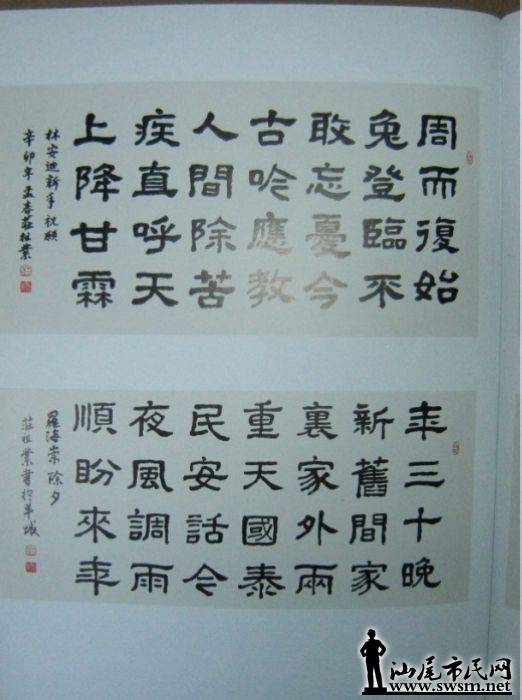 周而復始
兔登臨不
敢忘憂今
古吟應教
人間除苦
疾直呼天
上降甘霖
林安迪新年祝願
辛卯年孟春莊祖業
年三十晚
新舊間家
裏家外兩
重天國泰
民安話今
夜風調雨
順盼來年
羅海崇除夕
莊祖業書於羊城
汕尾市民网
www.swsm.net